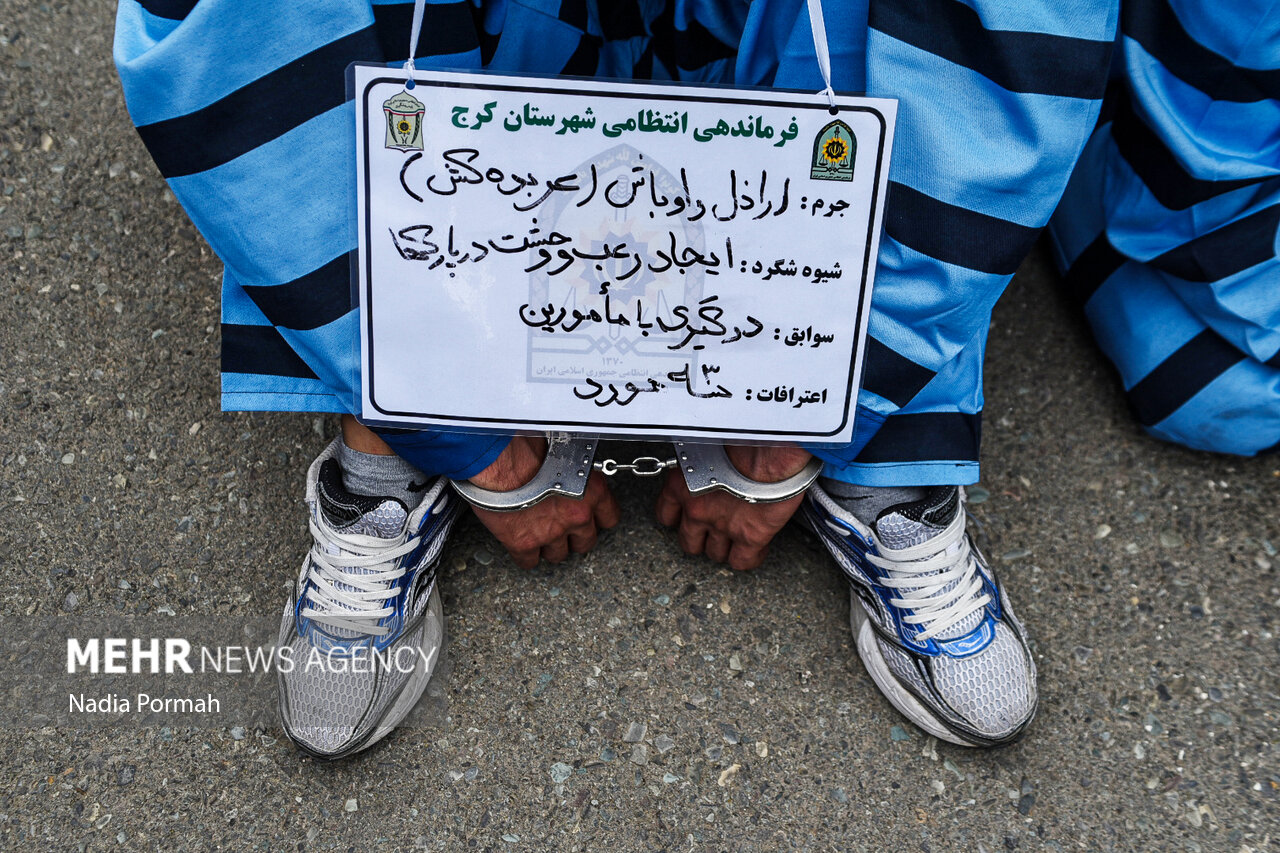 فرماندهی انتظامی شهرستان کرج
جرم: اراذل و اوباش (عربده کش)
شیوه شگرد: ایجاد رعب و وحشت در پارکها
سوابق: درگیری با مأمورین
اعترافات: ۳ مورد
۱۳۷۰
انتظامی جمهوری اسلامی ایران
MEHR NEWS AGENCY
Nadia Pormah